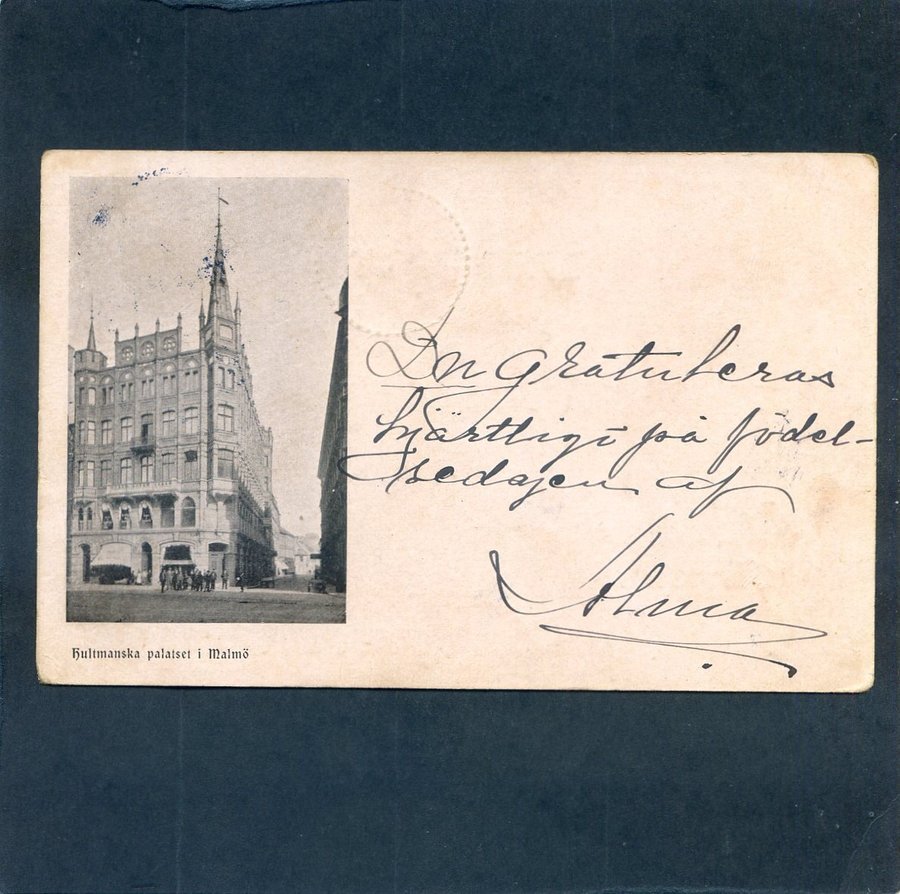 Du gratuleras
hjärtligt på födel-
sedagen af
Alma
Hultmanska palatset i Malmö